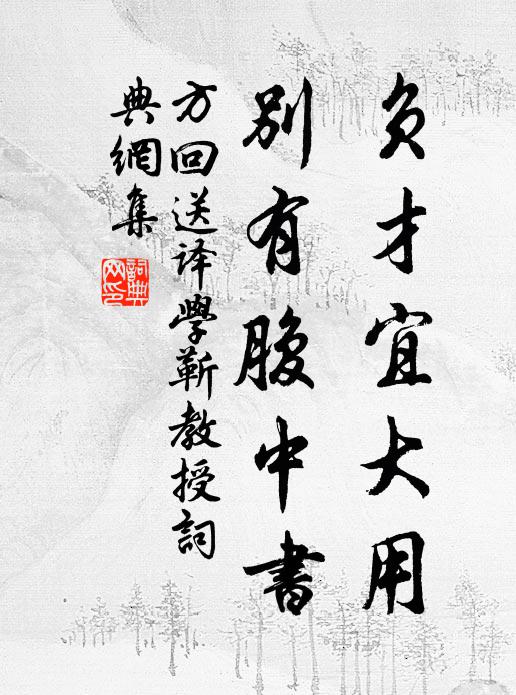 负才宜大用
别有腹中書
方回送译學靳教授詞
典網集
詞典
网印